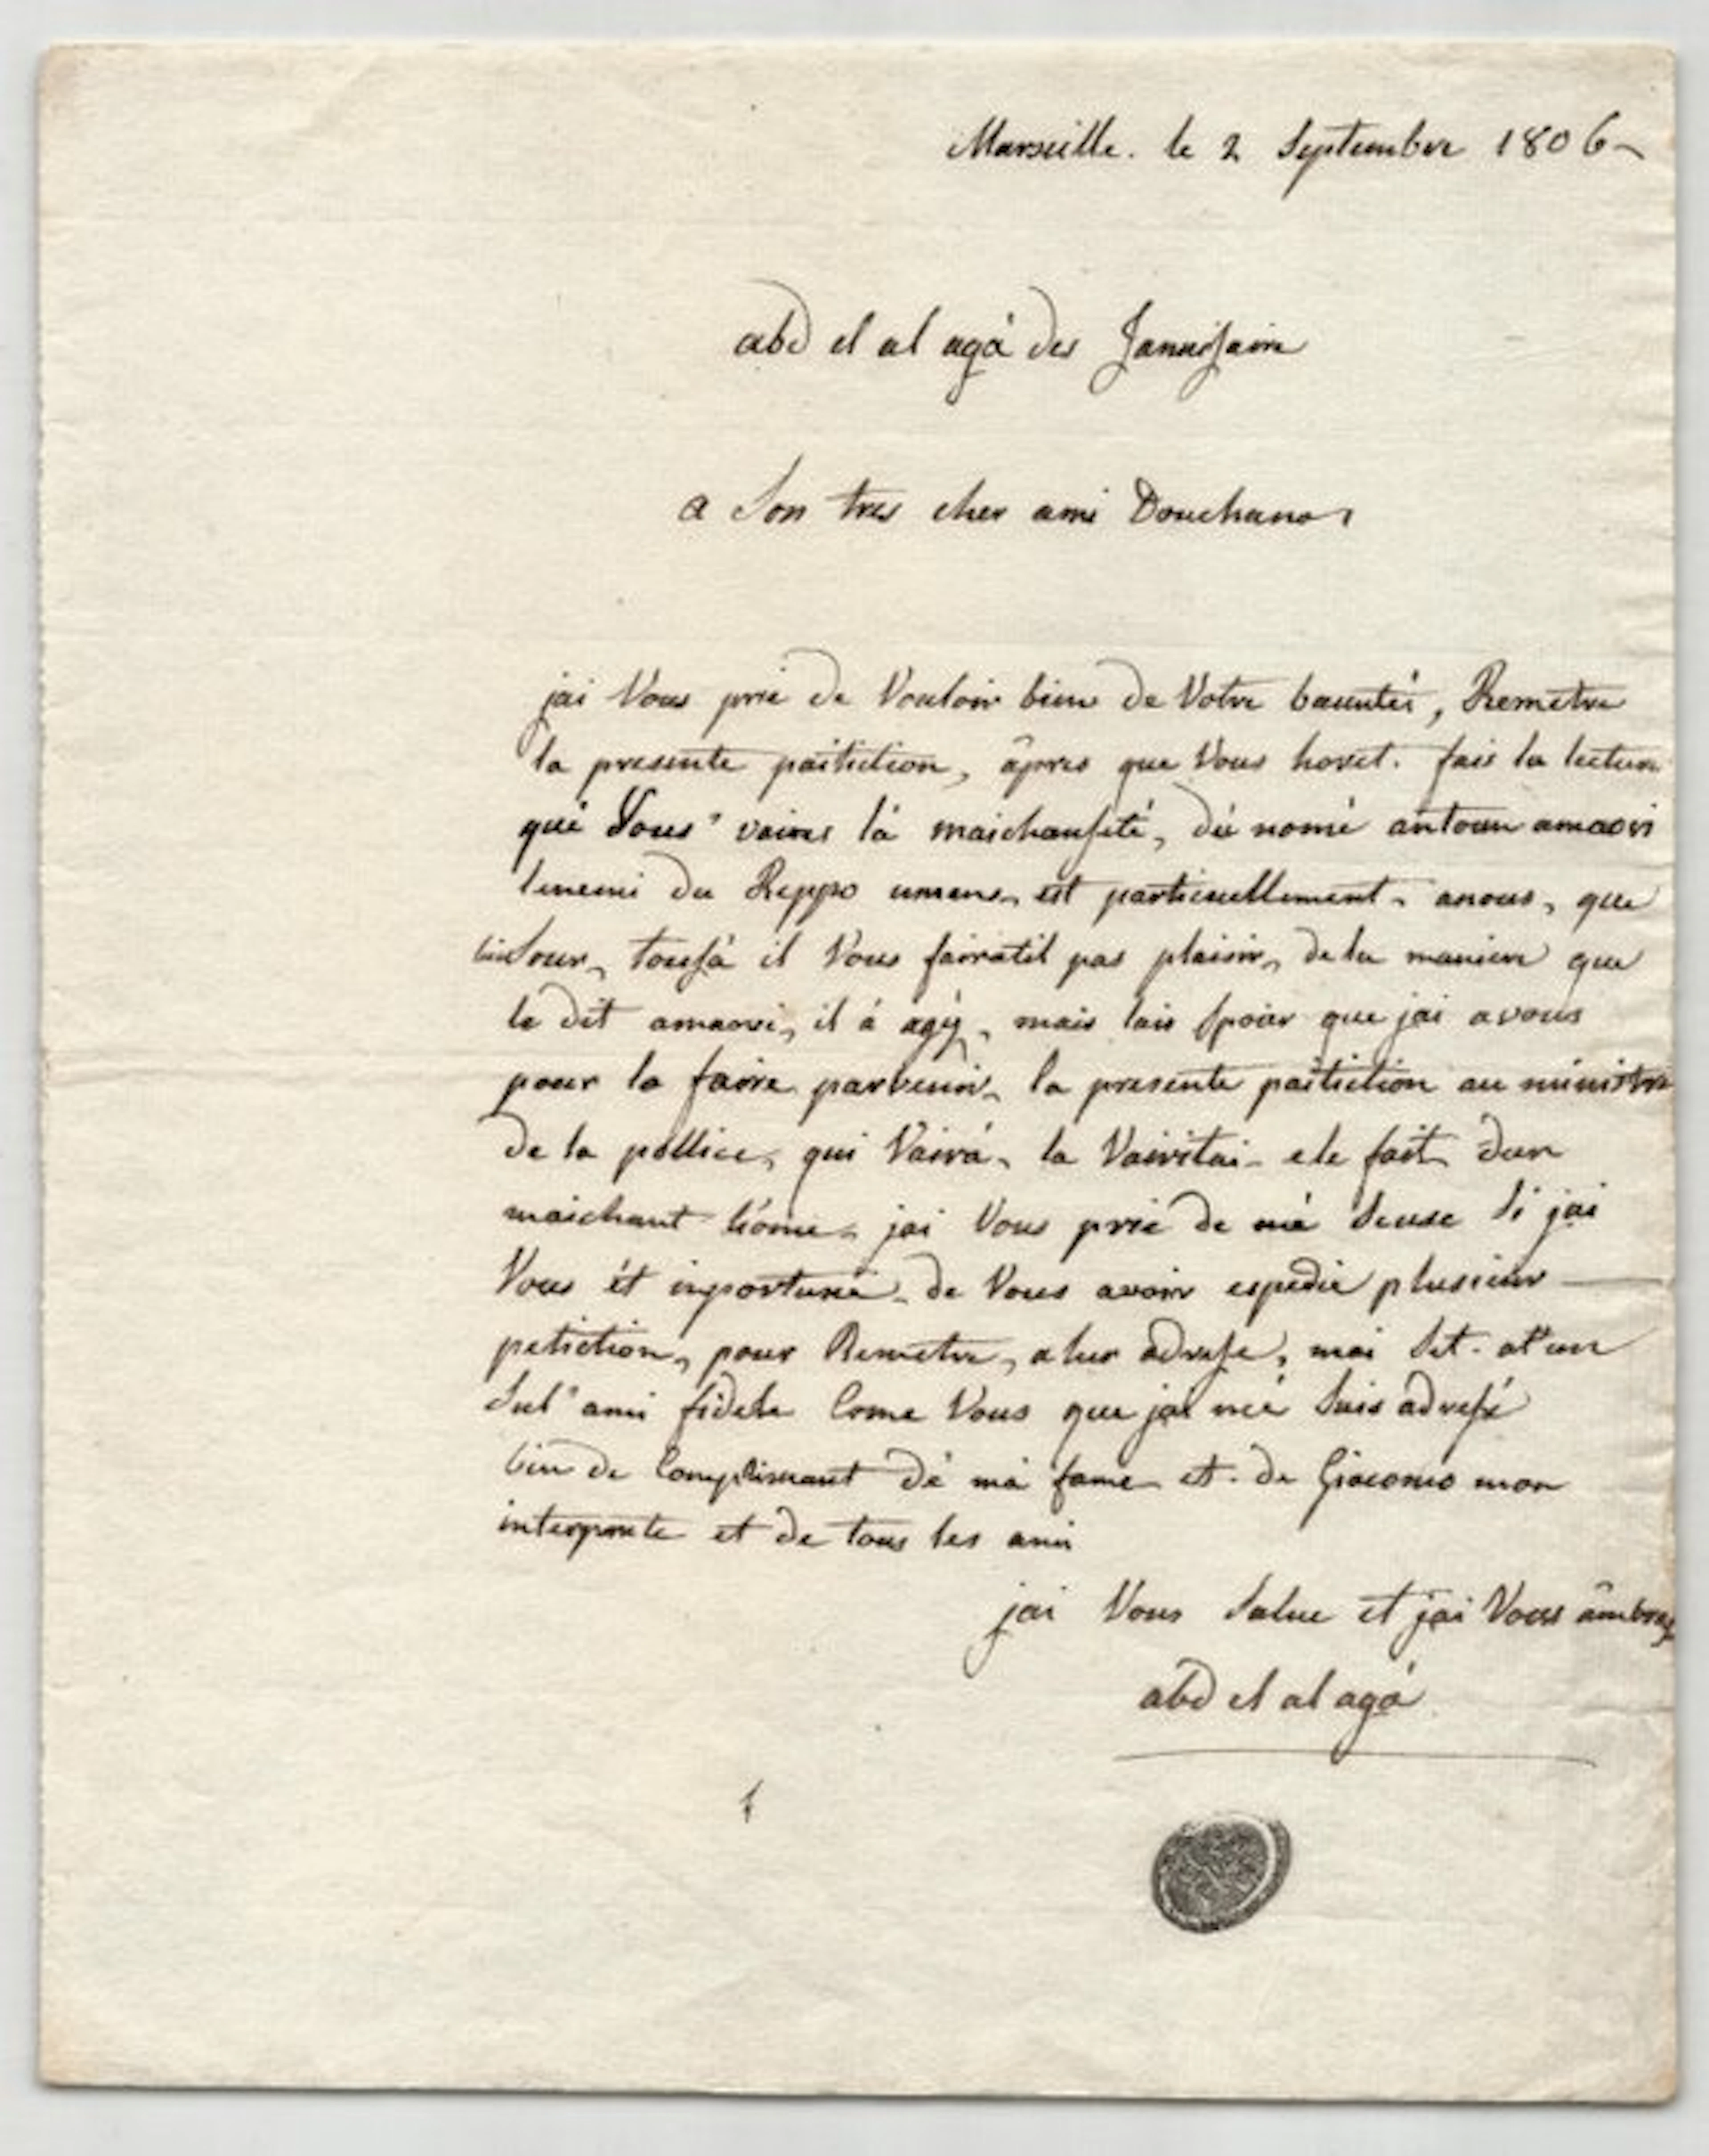 Marseille. le 2 Septembre 1806
abd el al agá des Janissaire
a Son tres cher ami Douchanor
jai Vous prié de Vouloir bien de Votre bauntés, Remetre
la presente paitiction, âpres que Vous horet. fais la lecture
qué Vous vaires lá maichanseté, dú nomé antoun amaori
lenemi du Reppo umens, est particuellement, anous, que
bin Sour, tousà il Vous fairatil pas plaisir, de la maniere que
le dit amaori, il á agÿ, mais lais Spoir que jai avous
pour la faire parvenir, la presente paitiction au ministre
de la pollice, qui Vairá, la Vairitai ele fait dun
maichant hóme, jai Vous prié de mé Scuse Si jai
Vous ét inportuné de Vous avoir espedié plusieur
petiction, pour Remetre, a lur adresse, mai Set. at'un
Sul' ami fidele Come Vous que jai mé Suis adressé
bin de Complimant dé má fame et. de Giacomo mon
interprete et de tous les ami
jai Vous Salue et jai Vous âmbras
abd el al agá